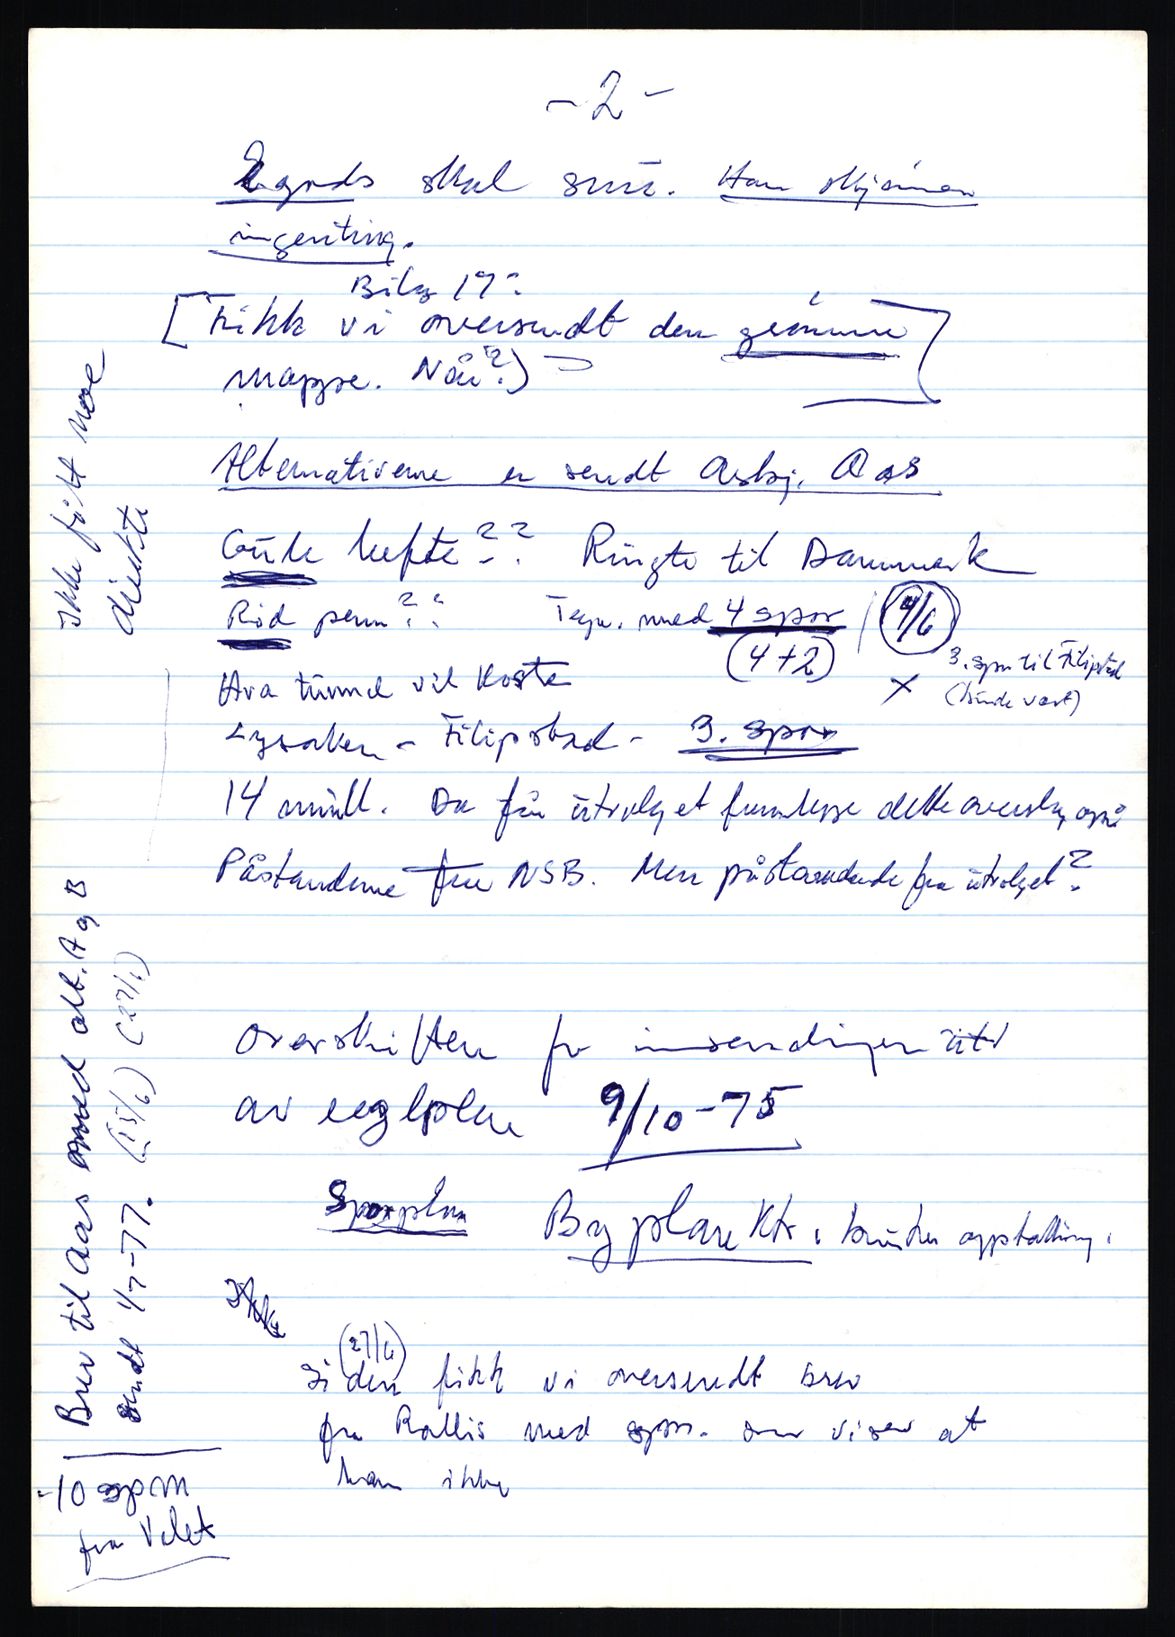 - 2 -
skal snu. Han skjønner
ingenting.
Bilag 19:
[Fikk vi oversendt den grønne
mappe. Når?)]
Alternativene er sendt Asbj. Aas
Gule hefte?? Ringte til Danmark
Rød penn?? Tegn. med 4 spor / 9/6
(4+2)
3. spor til Filipstad
(burde vært)
Hva tunnel vil koste
x
Lysaker - Filipstad - 3. spor
14 mill. Da får utvalget fremlegge dette overslag også
Påstandene fra NSB. Men påstandende fra utvalget?
Overskriften for innsendingen
av reg.plan 9/10-75
Sporplan Byplan Ktr.
(27/6)
Siden fikk vi oversendt brev
fra Rallis med spm. som viser at
han ikke
Ikke fått noe
direkte
Brev til Aas med alt. A og B
sendt 1/7-77. (15/6) (27/6)
-10 spm
fra Velet